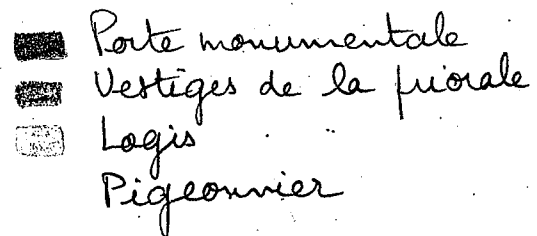 Porte monumentale
Vestiges de la priorale
Logis
Pigeonnier